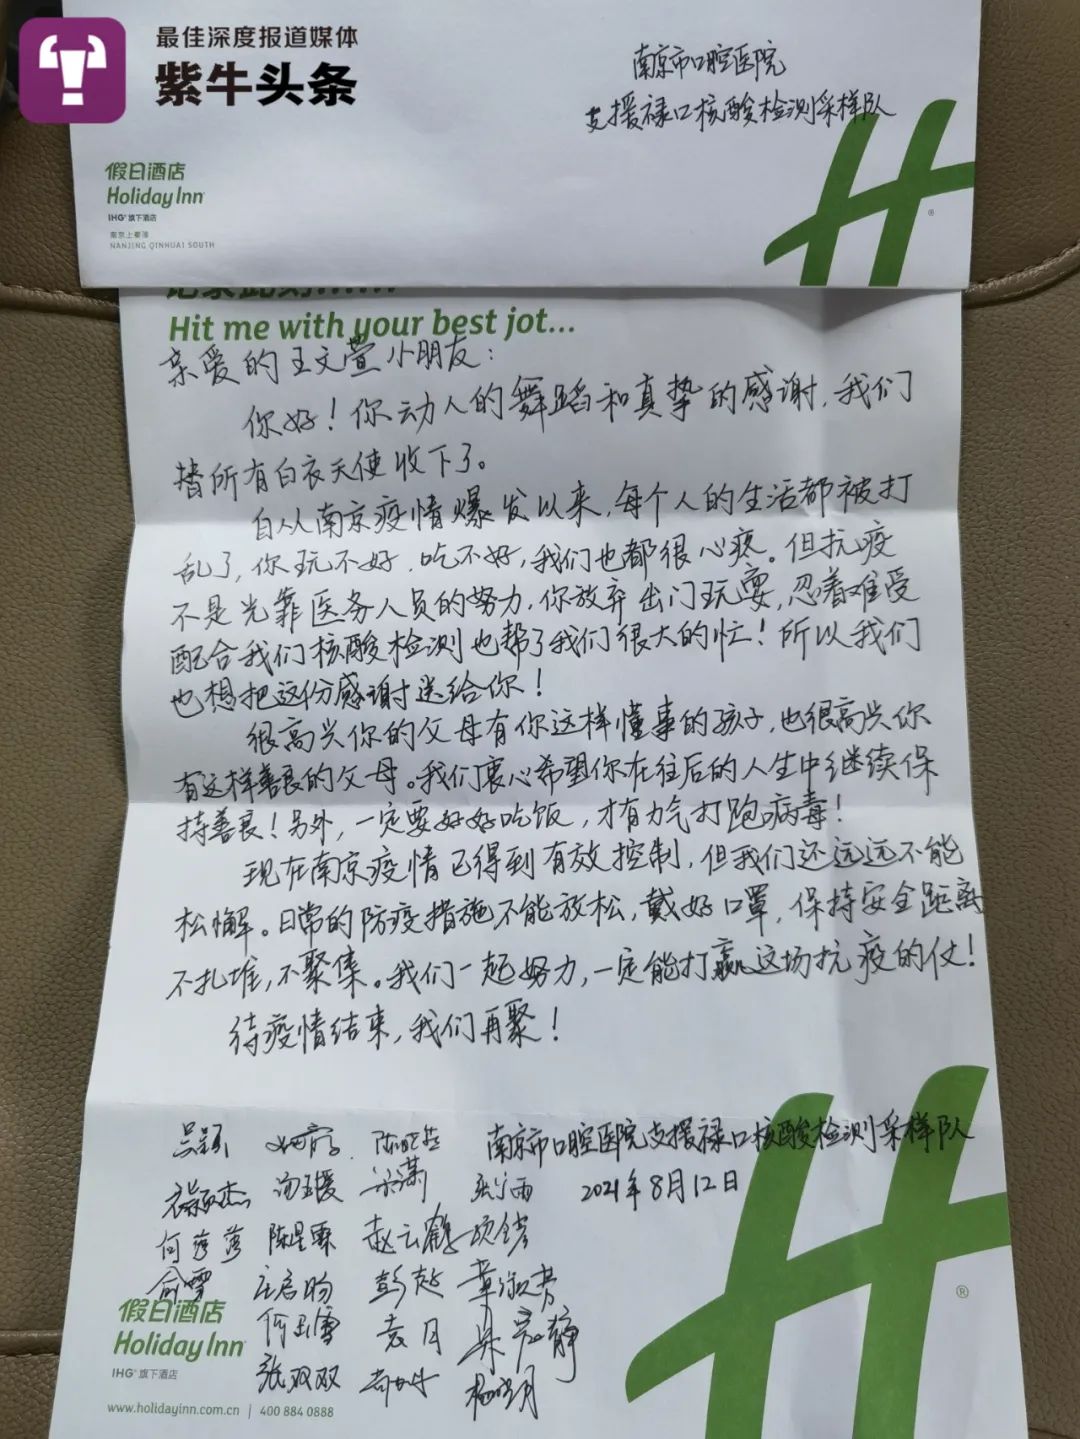 最佳深度报道媒体
紫牛头条
南京市口腔医院
支援禄口核酸检测采样队
假日酒店
Holiday Inn
IHG® 旗下酒店
南京上秦淮
NANJING QINHUAI SOUTH
®
Hit me with your best jot...
亲爱的王文萱小朋友:
你好!你动人的舞蹈和真挚的感谢,我们
替所有白衣天使收下了。
自从南京疫情爆发以来,每个人的生活都被打
乱了,你玩不好,吃不好,我们也都很心疼。但抗疫
不是光靠医务人员的努力,你放弃出门玩耍,忍着难受
配合我们核酸检测也帮了我们很大的忙!所以我们
也想把这份感谢送给你!
很高兴你的父母有你这样懂事的孩子,也很高兴你
有这样善良的父母。我们衷心希望你在往后的人生中继续保
持善良!另外,一定要好好吃饭,才有力气打跑病毒!
现在南京疫情已得到有效控制,但我们还远远不能
松懈。日常的防疫措施不能放松,戴好口罩,保持安全距离
不扎堆,不聚集。我们一起努力,一定能打赢这场抗疫的仗!
待疫情结束,我们再聚!
南京市口腔医院支援禄口核酸检测采样队
2021年8月12日
陈星霖 赵云鹤
俞雪
彭赵
袁月
张双双
假日酒店
Holiday Inn
®
IHG® 旗下酒店
www.holidayinn.com.cn | 400 884 0888